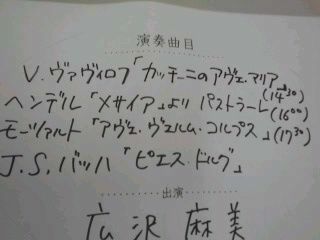 演奏曲目
V. ヴァヴィロフ「カッチーニのアヴェ・マリア」
ヘンデル「メサイア」より パストラーレ (14:30)
モーツァルト「アヴェ・ヴェルム・コルプス」 (16:00)
J.S.バッハ「ピエス・ドルグ」 (17:30)
出演
広沢麻美